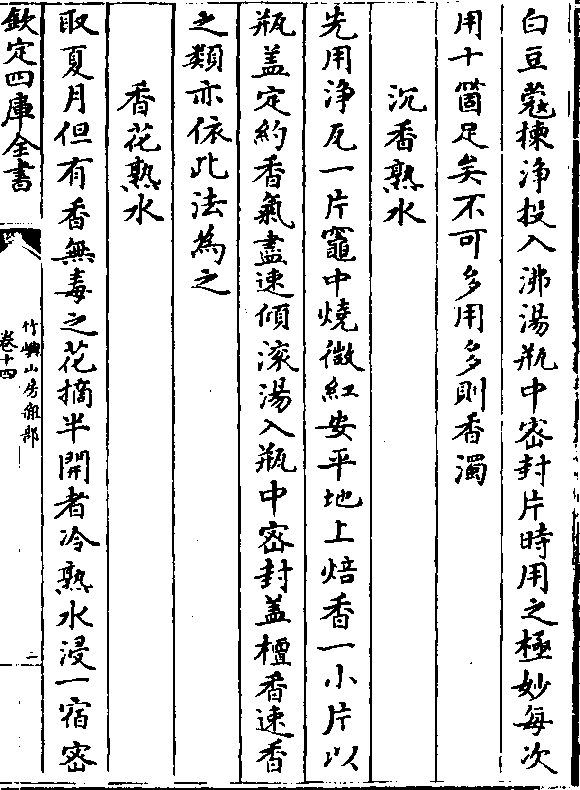 白豆蔻揀浄投入沸湯瓶中密封片時用之極妙每次
用十箇足矣不可多用多則香濁
沉香熟水
先用浄瓦一片竈中燒微紅安平地上焙香一小片以
瓶盖定約香氣盡速傾滚湯入瓶中密封盖檀香速香
之類亦依此法為之
香花熟水
取夏月但有香無毒之花摘半開者冷熟水浸一宿密
欽定四庫全書
竹嶼山房雜部
卷十四
二